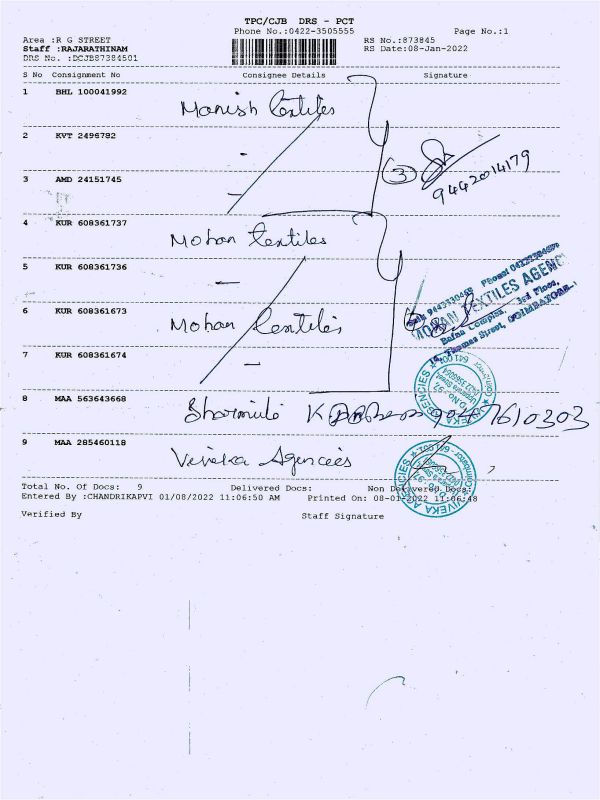 TPC/CJB DRS - PCT
Phone No.:0422-3505555 Page No.:1
Area :R G STREET RS No.:873845
Staff :RAJARATHINAM RS Date:08-Jan-2022
DRS No. :DCJB87384501
S No Consignment No Consignee Details Signature
1 BHL 100041992 Manish Textiles
2 KVT 2496792
3 AMD 24151745 3 9442014179
4 KUR 608361737 Mohan Textiles
5 KUR 608361736
MOHAN TEXTILES AGENC
Bafna Complex, 3rd Floor,
Thomas Street, COIMBATORE-1
6 KUR 608361673 Mohan Textiles
7 KUR 608361674
8 MAA 563643668 Sharmila
VIVEKA AGENCIES
9 MAA 285460118 Viveka Agencies
VIVEKA AGENCIES
Total No. Of Docs: 9 Delivered Docs: Non Delivered Docs:
Entered By :CHANDRIKAPVI 01/08/2022 11:06:50 AM Printed On: 08-01-2022 11:06:48
Verified By Staff Signature